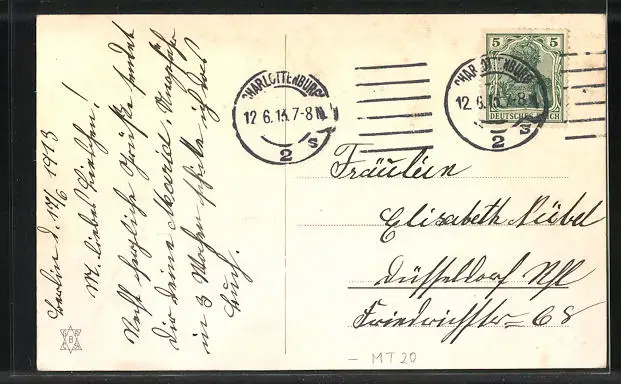 Berlin d. 12/6 1913
M. liebes Lieschen!
Recht herzliche Grüße sendet
Dir Deine Maria.
in 3 Wochen
CHARLOTTENBURG
12.6.13.7-8N.
2 s
CHARLOTTENBURG
12.6.13.7-8N.
2 s
5 5
DEUTSCHES REICH
Fräulein
Elisabeth Nübel
Düsseldorf
Friedrichstr 68
B
- MT20